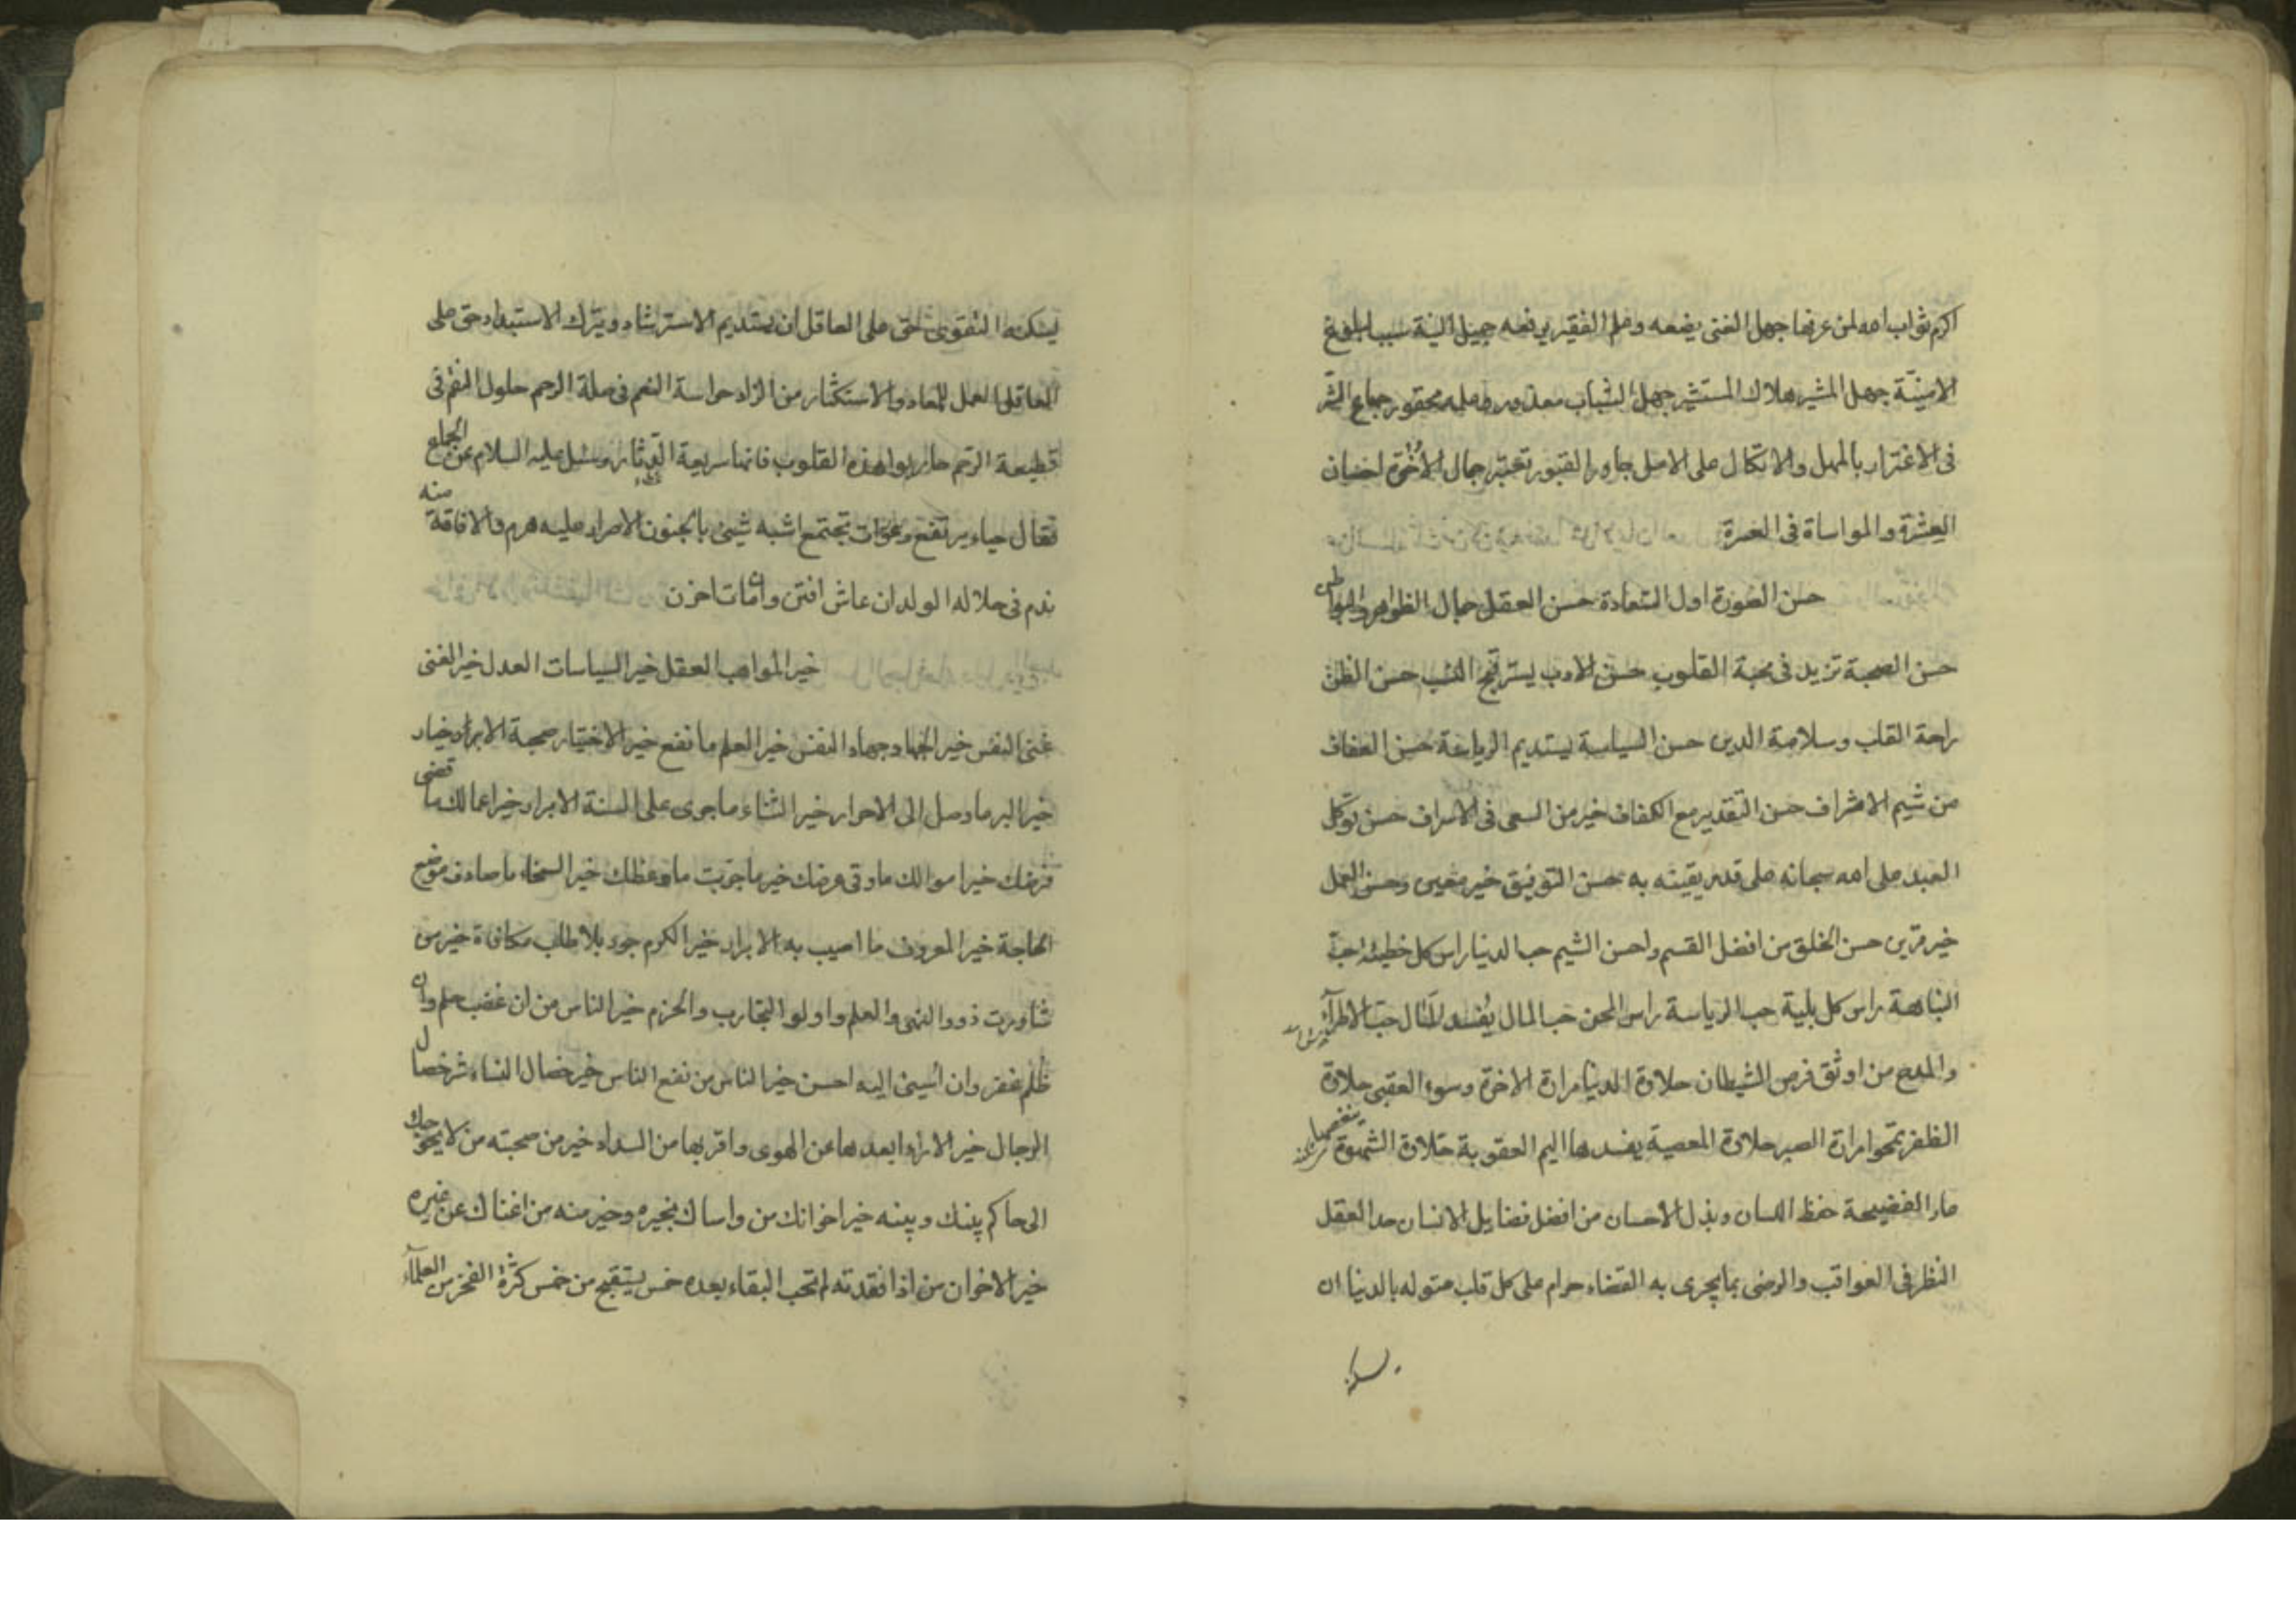 اكرم ثواب الله لمن عرفها جهل الغنى يضعه وعلم الفقير يرفعه جميل النية سبب لبلوغ
الامنيّة جهل المشير هلاك المستشير جهل الشباب معذور وعلمه محقور جماع الشر
فى الاغترار بالمهل والاتكال على الامل جاور القبور تعتبر جمال الأخوّة احسان
العشرة والمواساة فى العسرة
حسن الصورة اول السّعادة حسن العقل جمال الظواهر والبواطن
حسن الصحبة تزيد فى محبة القلوب حسن الادب يستر قبح النسب حسن الظن
راحة القلب وسلامة الدين حسن السياسة يستديم الرياسة حسن العفاف
من شيم الاشراف حسن التقدير مع الكفاف خير من السعى فى الاسراف حسن توكل
العبد على الله سبحانه على قدر يقينه به حسن التوفيق خير معين وحسن العمل
خير قرين حسن الخلق من افضل القسم واحسن الشيم حب الدنيا راس كل خطيئة حبّ
النباهة راس كل بلية حب الرياسة راس المحن حب المال يُفسد المآل حبّ الاطرآء
والمدح من اوثق فرص الشيطان حلاوة الدنيا مرارة الاخرة وسوء العقبى حلاوة
الظفر تمحو مرارة الصبر حلاوة المعصية يفسدها اليم العقوبة حلاوة الشهوة ينغصها
عار الفضيحة حفظ اللسان وبذل الاحسان من افضل فضايل الانسان حد العقل
النظر فى العواقب والرضى بما يجرى به القضاء حرام على كل قلب متوله بالدنيا ان
يسكنه التقوى حق على العاقل ان يستديم الاسترشاد ويترك الاستبداد حق على
العاقل العمل للمعاد والاستكثار من الزاد حراسة النعم فى صلة الرحم حلول النقم فى
قطيعة الرحم حاربوا هذه القلوب فانها سريعة الدثار وسئل عليه السلام عن الجماع
فقال حياء يرتفع وعورات تجتمع اشبه شيئ بالجنون الاصرار عليه هرم والافاقة منه
ندم فى حلاله الولد ان عاش افتن وان مات احزن
خير المواهب العقل خير السياسات العدل خير الغنى
غنى النفس خير الجهاد جهاد النفس خير العلم ما نفع خير الاختيار صحبة الابرار وخيار
خير البر ما وصل الى الاحرار خير الثناء ما جرى على السنة الابرار خير اعمالك ما قضى
فرضك خير اموالك ما وقى عرضك خير ما جربت ما وعظك خير السخاء ما صادف موضع
الحاجة خير المعروف ما اصيب به الابرار خير الكرم جود بلا طلب مكافاة خير من
شاورت ذووا النهى والعلم واولو التجارب والحزم خير الناس من ان غضب حلم وان
ظلم غفر وان اُسيئ اليه احسن خير الناس من نفع الناس خير خصال النساء شر خصال
الرجال خير الاراء ابعدها عن الهوى واقربها من السداد خير من صحبته من لا يحوجك
الى حاكم بينك وبينه خير اخوانك من واساك بخيره وخير منه من اغناك عن غيره
خير الاخوان من اذا فقدته لم تحب البقاء بعده خمس يستقبح من خمس كثرة الفخر من العلمآء